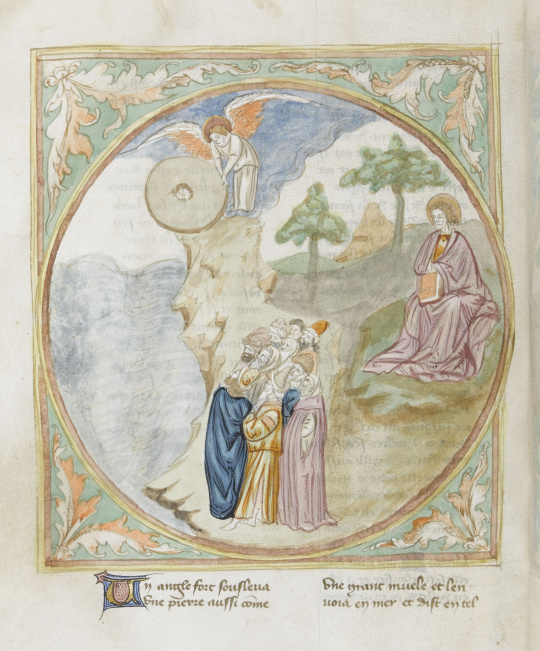 Un angle fort sousleva
vne pierre aussi cōme
vne grant muele et len-
voia en mer et dist en tel